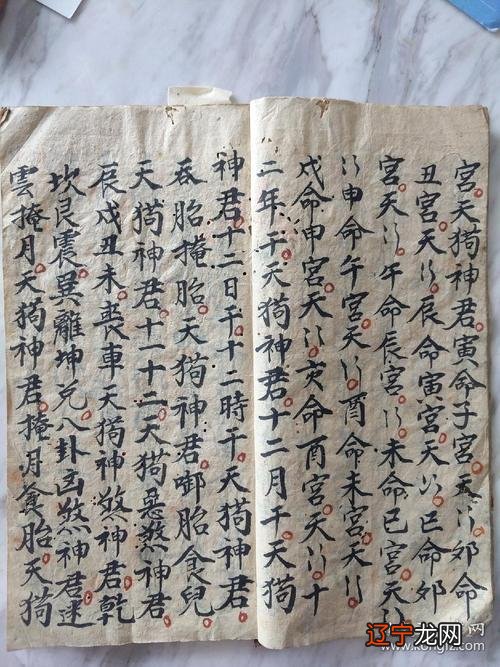 宮天狗神君寅命子宮天〻卯命
丑宮天〻辰命寅宮天〻巳命卯
宮天〻午命辰宮〻未命巳宮天〻
〻申命午宮天〻酉命未宮天〻
戌命申宮天〻亥命酉宮天〻十
二年千天狗神君十二月千天狗
神君十二日千十二時千天狗神君
吞胎掩胎天狗神君啣胎食兒
天狗神君十一十二天狗惡煞神君
辰戌丑未喪車天狗神煞神君乾
坎艮震巽離坤兌八卦凶煞神君迷
雲掩月天狗神君掩月食胎天狗
辽宁龙网